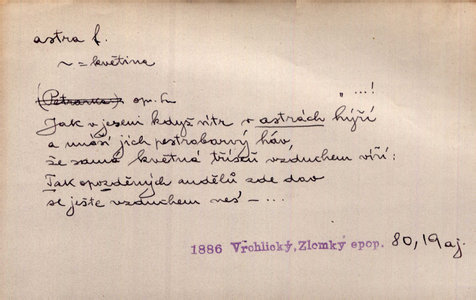 astra f.
~ = květina
(Petrarka) op. L
„ ...!
Jak v jeseni když vítr v astrách hýří
a unáší jich pestrobarvý háv,
že samá květná tříšť vzduchem víří:
Tak opozděných andělů zde dav
se ještě vzduchem nes' – ...
1886 Vrchlický, Zlomky epop. 80,19 aj.